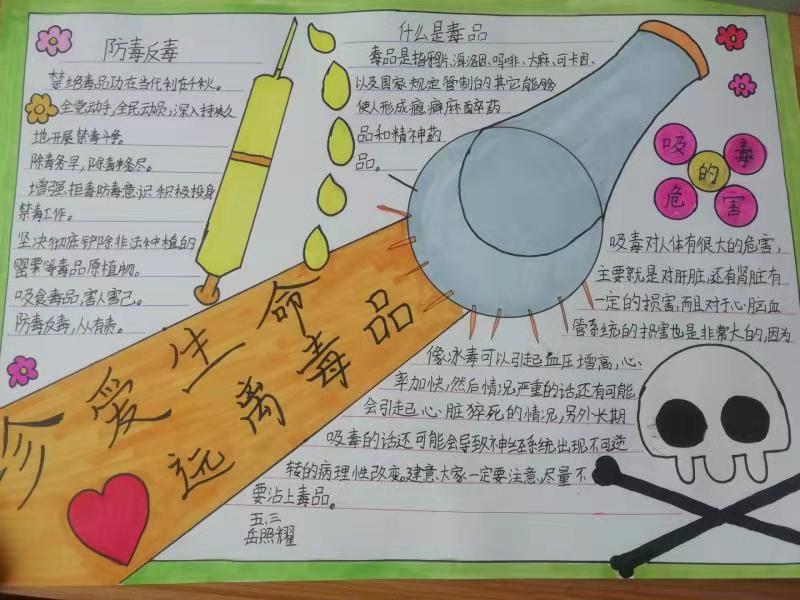 防毒反毒
禁绝毒品功在当代利在千秋。
全党动手,全民动员,深入持久
地开展禁毒斗争。
除毒务早,除毒务尽。
增强拒毒防毒意识积极投身
禁毒工作。
坚决彻底铲除非法种植的
罂粟等毒品原植物。
吸食毒品,害人害己。
防毒反毒,从有责。
什么是毒品
毒品是指鸦片、海洛因、吗啡、大麻、可卡因、
以及国家规定管制的其它能够
使人形成瘾癖麻醉药
品和精神药
品。
珍爱生命
远离毒品
吸毒
的
危害
吸毒对人体有很大的危害,
主要就是对肝脏,还有肾脏有
一定的损害,而且对于心脑血
管系统的损害也是非常大的,因为
像冰毒可以引起血压增高,心
率加快,然后情况严重的话还有可能
会引起心脏猝死的情况,另外长期
吸毒的话还可能会导致神经系统出现不可逆
转的病理性改变。建意大家一定要注意,尽量不
要沾上毒品。
五.三
岳照耀